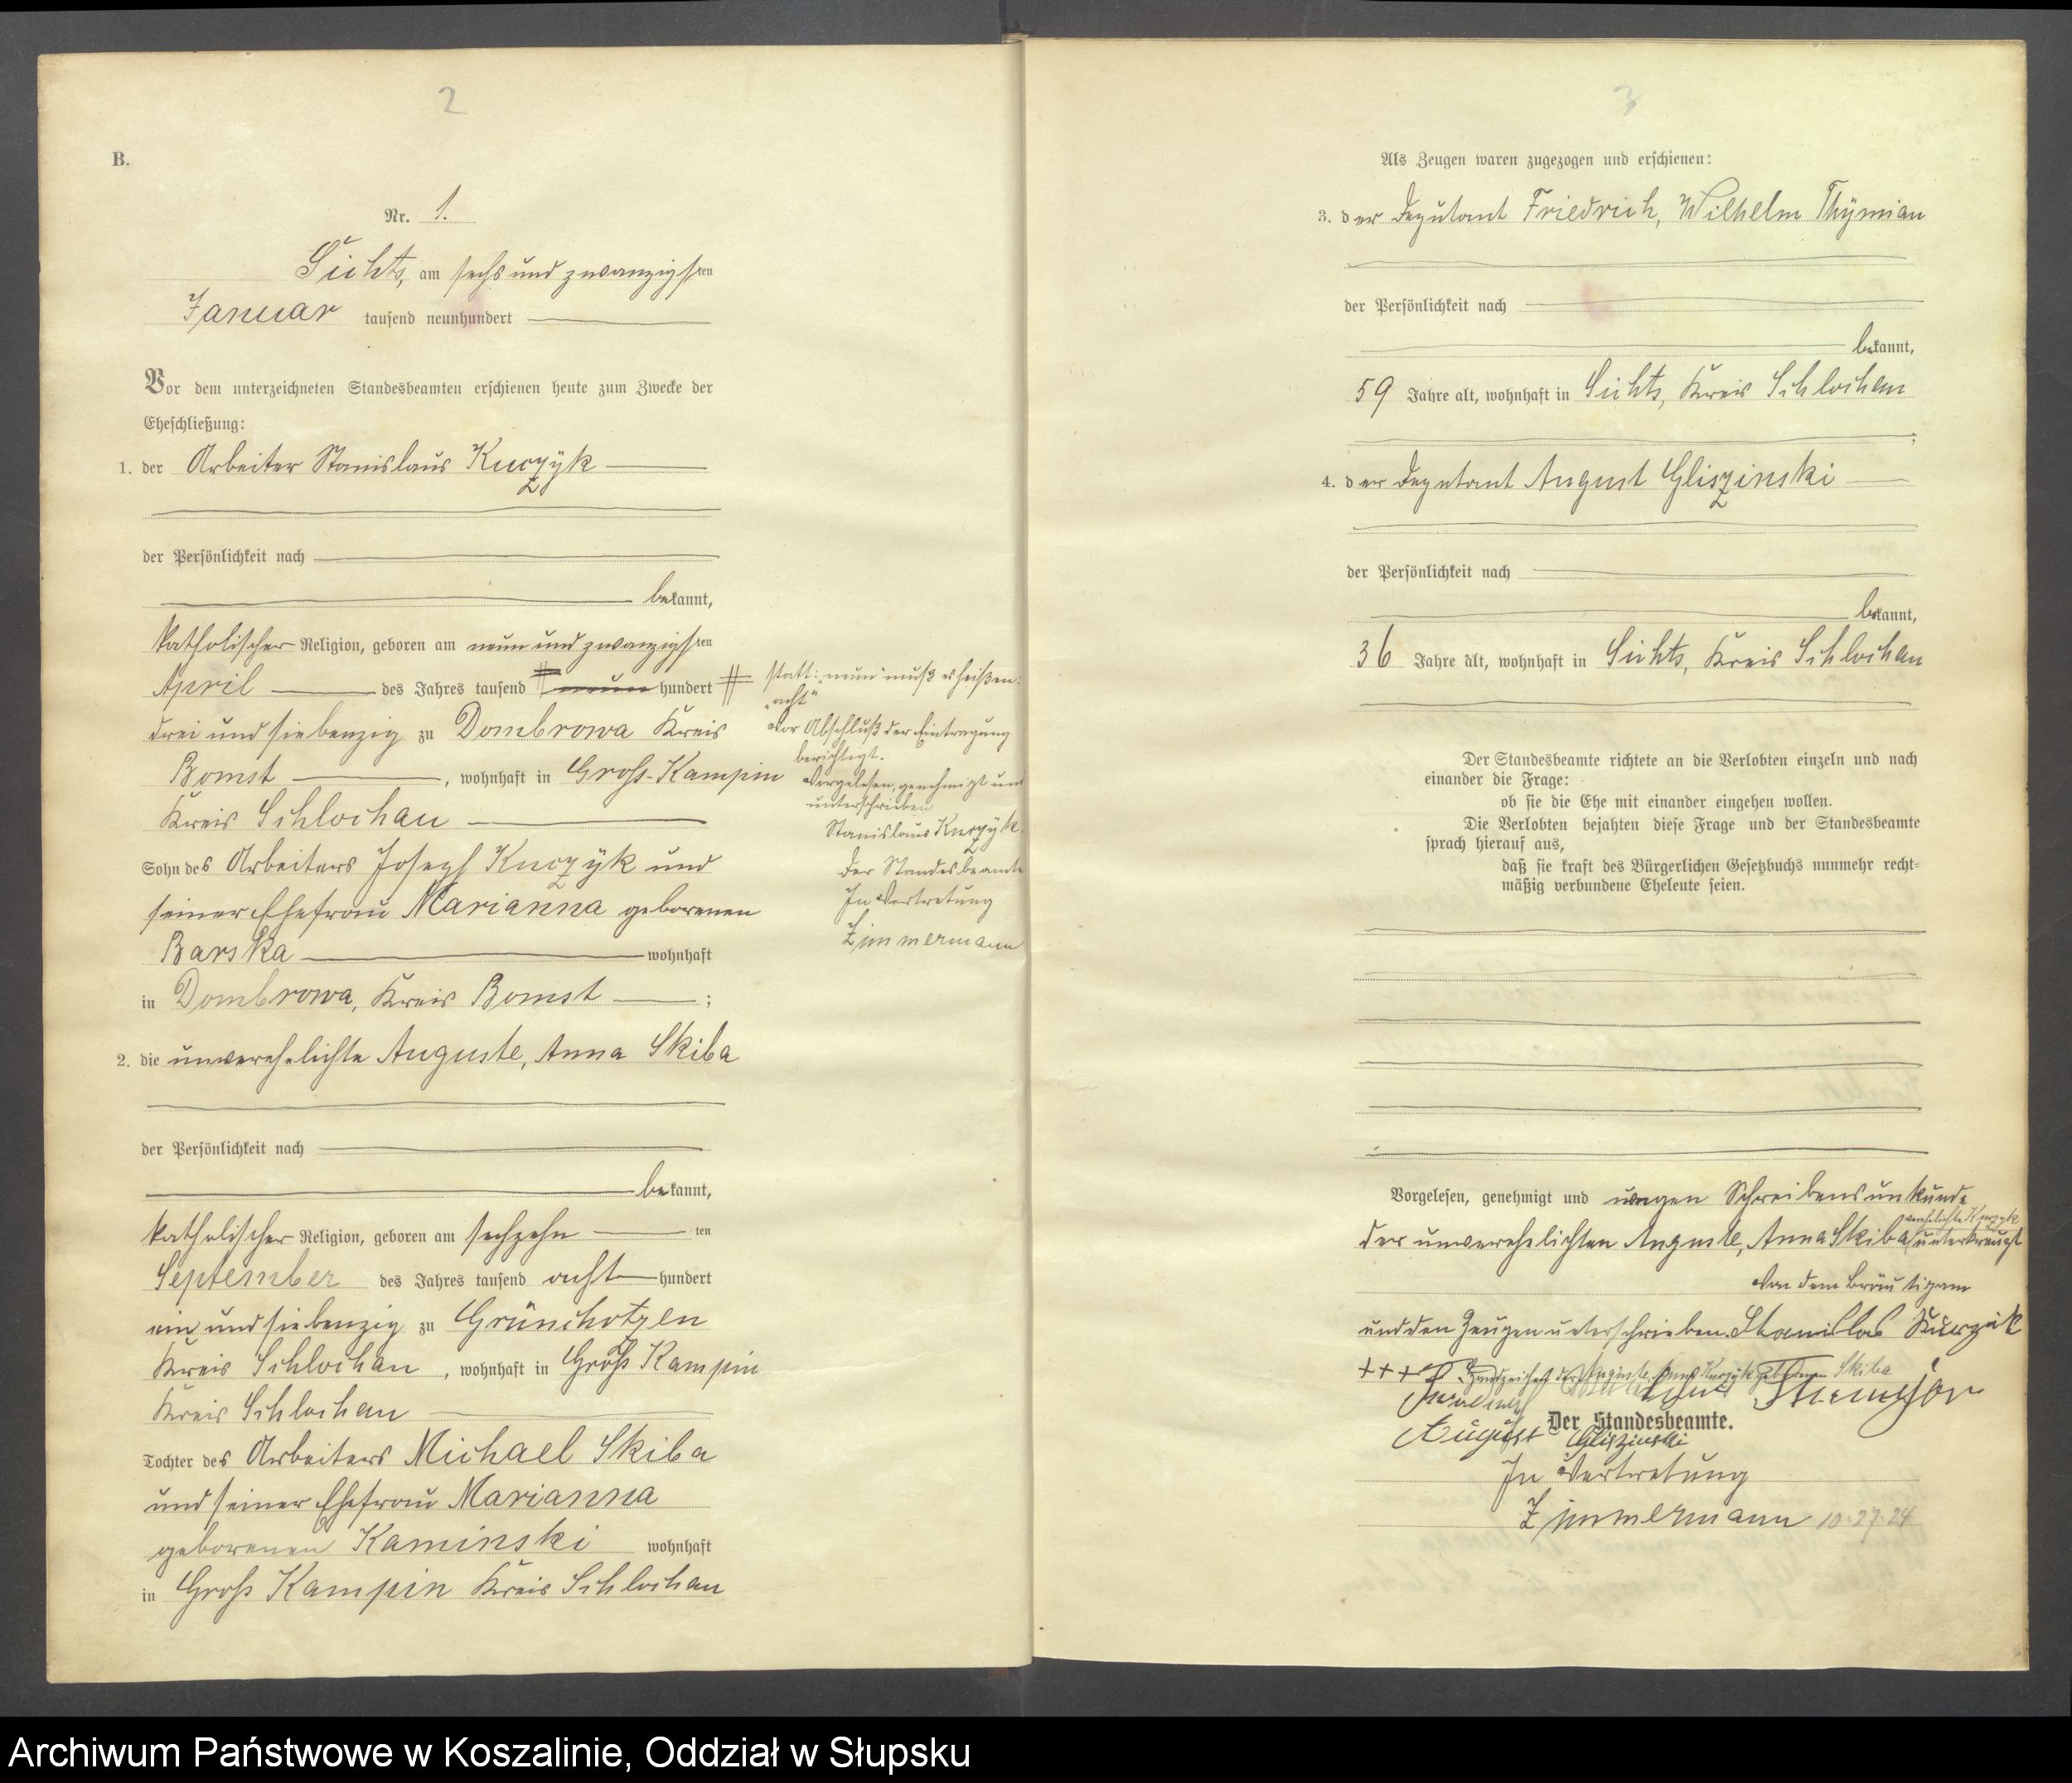 2
B.
Nr. 1.
Sichts, am sechs und zwanzigsten
Januar tausend neunhundert
Vor dem unterzeichneten Standesbeamten erschienen heute zum Zwecke der
Eheschließung:
1. der Arbeiter Stanislaus Kuczÿk
der Persönlichkeit nach
bekannt,
katholischer Religion, geboren am neun und zwanzigsten
April des Jahres tausend neun hundert
drei und siebenzig zu Dombrowa Kreis
Bomst, wohnhaft in Gross-Kampin
Kreis Schlochau
Sohn des Arbeiters Joseph Kuczÿk und
seiner Ehefrau Marianna geborenen
Barska wohnhaft
in Dombrowa, Kreis Bomst ;
2. die unverehelichte Auguste, Anna Skiba
der Persönlichkeit nach
bekannt,
katholischer Religion, geboren am sechzehn ten
September des Jahres tausend acht hundert
ein und siebenzig zu Grünchotzen
Kreis Schlochau, wohnhaft in Groß Kampin
Kreis Schlochau
Tochter des Arbeiters Michael Skiba
und seiner Ehefrau Marianna
geborenen Kaminski wohnhaft
in Groß Kampin Kreis Schlochau
statt: „neun" muß es heißen:
„acht"
Vor Abschluß der Eintragung
berichtigt.
Vorgelesen, genehmigt und
unterschrieben
Stanislaus Kuczÿk.
Der Standesbeamte
In Vertretung
Zimmermann
3
Als Zeugen waren zugezogen und erschienen:
3. der Deputant Friedrich, Wilhelm Thÿmian
der Persönlichkeit nach
bekannt,
59 Jahre alt, wohnhaft in Sichts, Kreis Schlochau
;
4. der Deputant August Gliszinski
der Persönlichkeit nach
bekannt,
36 Jahre alt, wohnhaft in Sichts, Kreis Schlochau
Der Standesbeamte richtete an die Verlobten einzeln und nach
einander die Frage:
ob sie die Ehe mit einander eingehen wollen.
Die Verlobten bejahten diese Frage und der Standesbeamte
sprach hierauf aus,
daß sie kraft des Bürgerlichen Gesetzbuchs nunmehr recht-
mäßig verbundene Eheleute seien.
Vorgelesen, genehmigt und wegen Schreibensunkunde
verehelichte Kuczÿk
der unverehelichten Auguste, Anna Skiba unterkreuzt
Von dem Bräutigam
und den Zeugen unterschrieben. Stanislas
+++ Handzeichen der Auguste Anna Kuczÿk geborenen Skiba
Der Standesbeamte.
August Gliszinski
In Vertretung
Zimmermann 10.27.24
Archiwum Państwowe w Koszalinie, Oddział w Słupsku